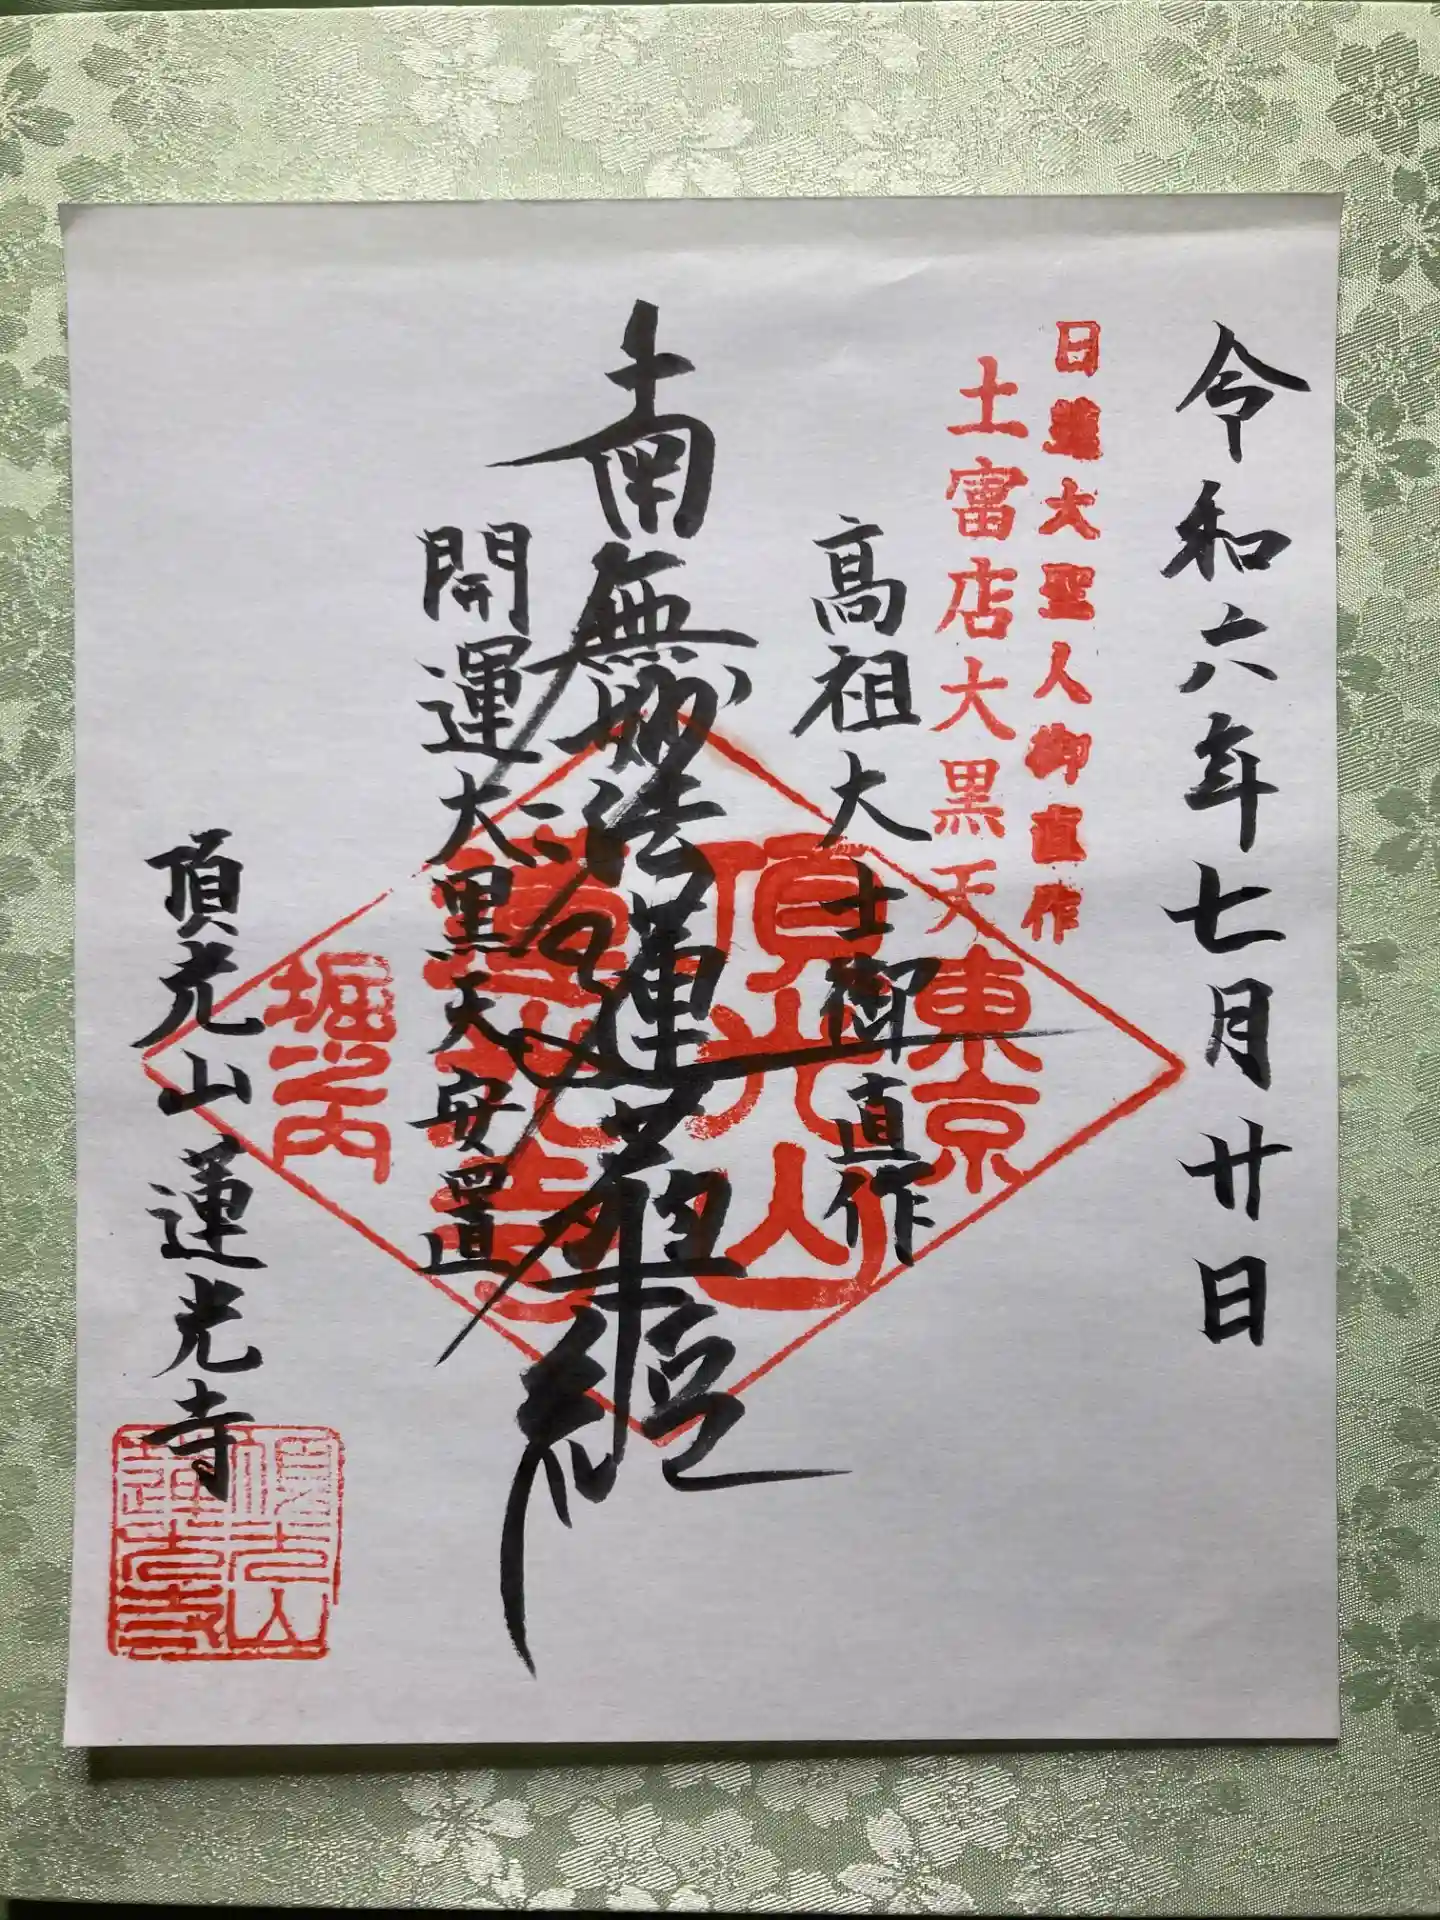 令和六年七月廿日
日蓮大聖人御直作
土富店大黒天
高祖大士御直作
東京
頂光山
南無妙法蓮華経
蓮光寺
開運大黒天安置
堀之内
頂光山蓮光寺
頂光山
蓮光寺